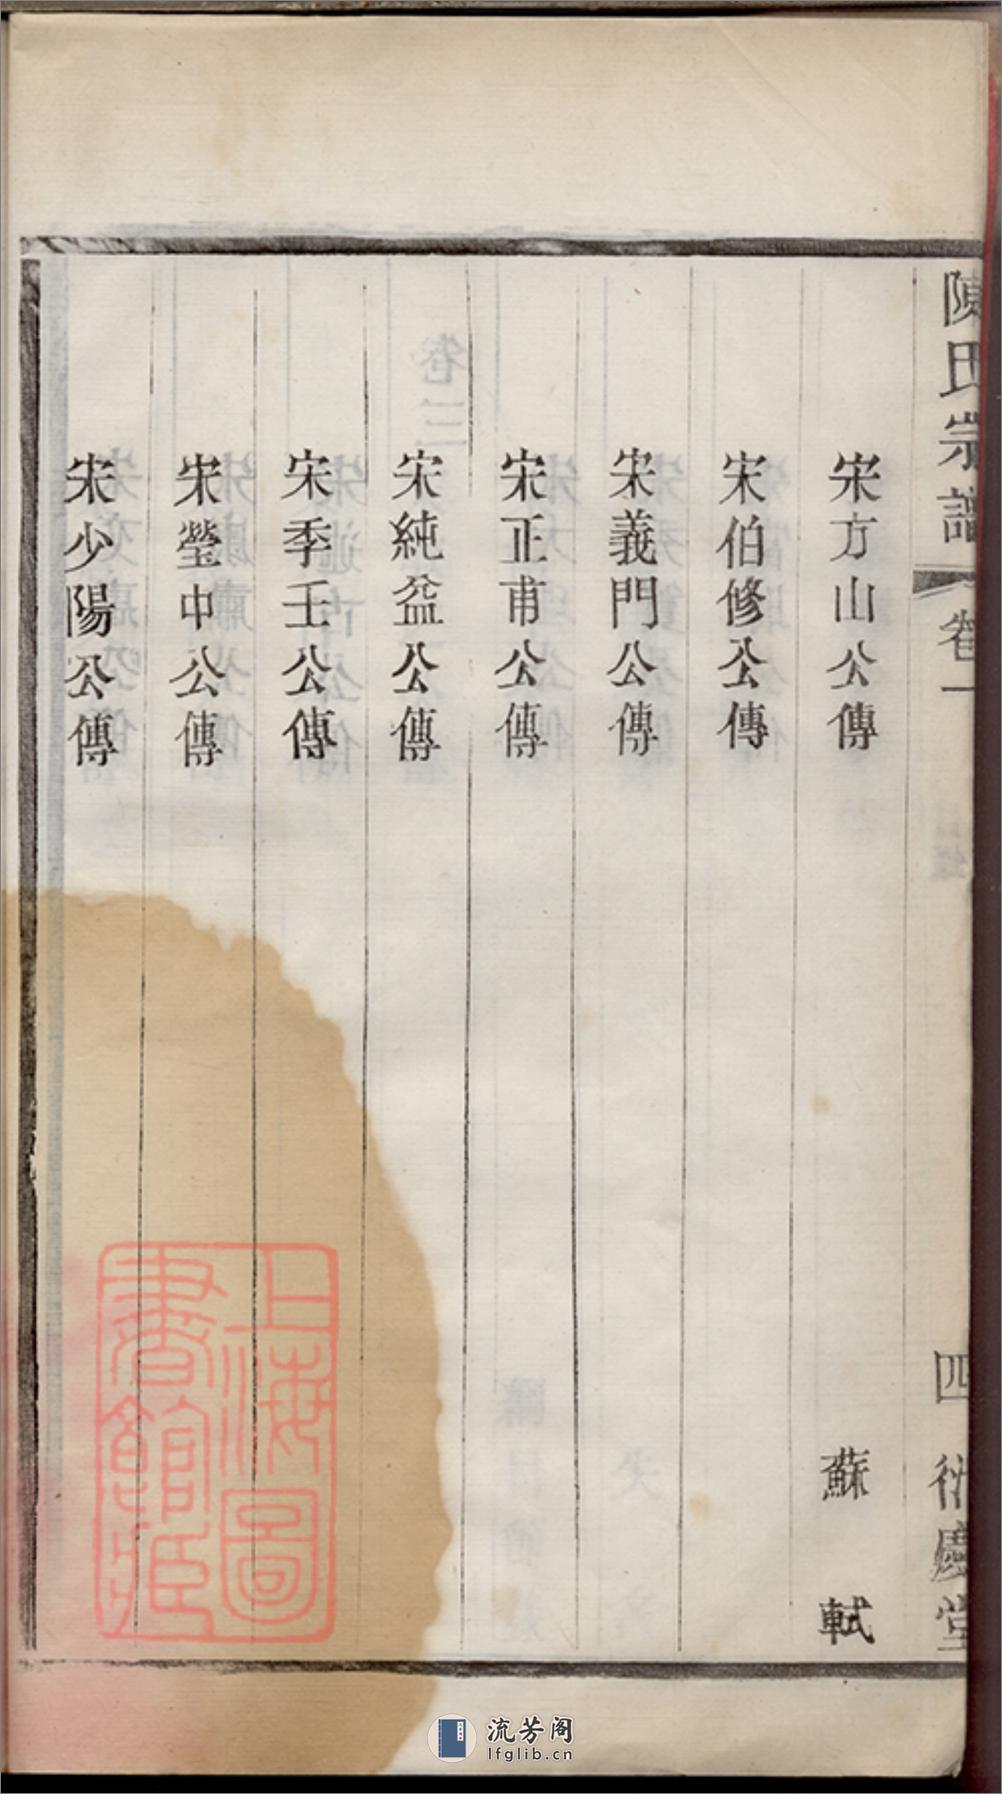 陳氏宗譜 卷一 四 衍慶堂
宋方山公傳 蘇軾
宋伯修公傳
宋義門公傳
宋正甫公傳
宋純益公傳
宋季壬公傳
宋瑩中公傳
宋少陽公傳
上海圖書館藏
流芳阁
lfglib.cn